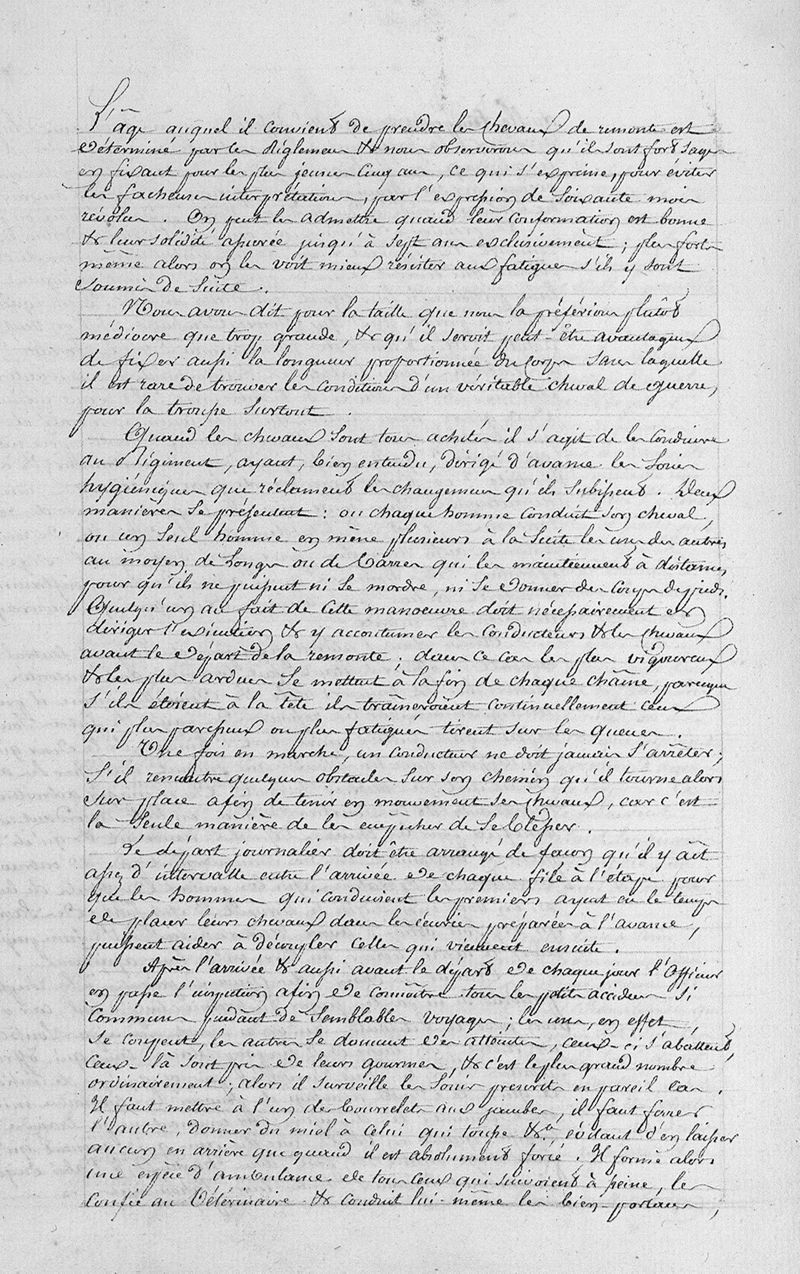 L'âge auquel il convient de prendre les chevaux de remonte est
déterminé par les Réglemens & nous observerons qu'ils sont fort sages
en fixant pour les plus jeunes cinq ans, ce qui s'exprime, pour éviter
les facheuses interprétations, par l'expression de Soixante mois
révolus. On peut les admettre quand leur Conformation est bonne
& leur solidité assurée jusqu'à Sept ans exclusivement ; plus forts
même alors on les voit mieux résister aux fatigues s'ils y sont
Soumis de Suite.
Nous avons dit pour la taille que nous la préférions plutôt
médiocre que trop grande, & qu'il seroit peut-être avantageux
de fixer aussi la longueur proportionnée du Corps sans laquelle
il est rare de trouver les conditions d'un véritable cheval de guerre,
pour la troupe Surtout.
Quand les chevaux Sont tous achetés il s'agit de les Conduire
au Régiment, ayant, bien entendu, dirigé d'avance les Soins
hygièniques que réclament les changemens qu'ils subissent. Deux
manières Se présentent : ou chaque homme Conduit Son cheval,
ou un Seul homme en mène plusieurs à la Suite les uns des autres
au moyen de Longes ou de Barres qui les maintiennent à distance,
pour qu'ils ne puissent ni Se mordre, ni Se donner des Coups de pieds.
Quelqu'un au fait de Cette manoeuvre doit nécessairement en
diriger l'exécution & y accoutumer les conducteurs & les chevaux
avant le départ de la remonte ; dans ce cas les plus vigoureux
& les plus ardens Se mettent à la fin de chaque chaîne, parceque
s'ils étoient à la tête ils traineroient continuellement ceux
qui plus paresseux ou plus fatigués tirent Sur les queues.
Une fois en marche, un conducteur ne doit jamais S'arrêter ;
S'il rencontre quelques obstacles Sur Son chemin qu'il tourne alors
Sur place afin de tenir en mouvement Ses chevaux, car c'est
la Seule manière de les empêcher de Se blesser.
Le départ journalier doit être arrangé de façon qu'il y ait
assez d'intervalle entre l'arrivée de chaque file à l'étape pour
que les hommes qui conduisent les premiers ayant eu le temps
de placer leurs chevaux dans les écuries préparées à l'avance,
puissent aider à découpler Celles qui viennent ensuite.
Après l'arrivée & aussi avant le départ de chaque jour l'Officier
en passe l'inspection afin de connaître tous les petits accidens Si
Communs pendant de Semblables voyages ; les uns, en effet,
Se coupent, les autres Se donnent des atteintes, ceux-ci s'abattent,
Ceux-là Sont pris de leurs gourmes, & c'est le plus grand nombre
ordinairement ; alors il surveille les Soins prescrits en pareil Cas.
Il faut mettre à l'un des bourrelets aux jambes, il faut ferrer
l'autre, donner du miel à Celui qui tousse &a évitant d'en laisser
aucun en arrière que quand il est absolument forcé. Il forme alors
une espèce d'ambulance de tous Ceux qui Suivoient à peine, les
Confie au Vétérinaire & conduit lui-même les bien-portans,